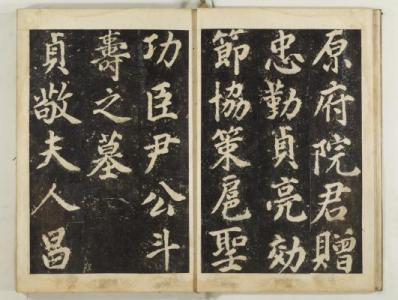 原府院君贈
忠勤貞亮効
節協策扈聖
功臣尹公斗
壽之墓
貞敬夫人昌